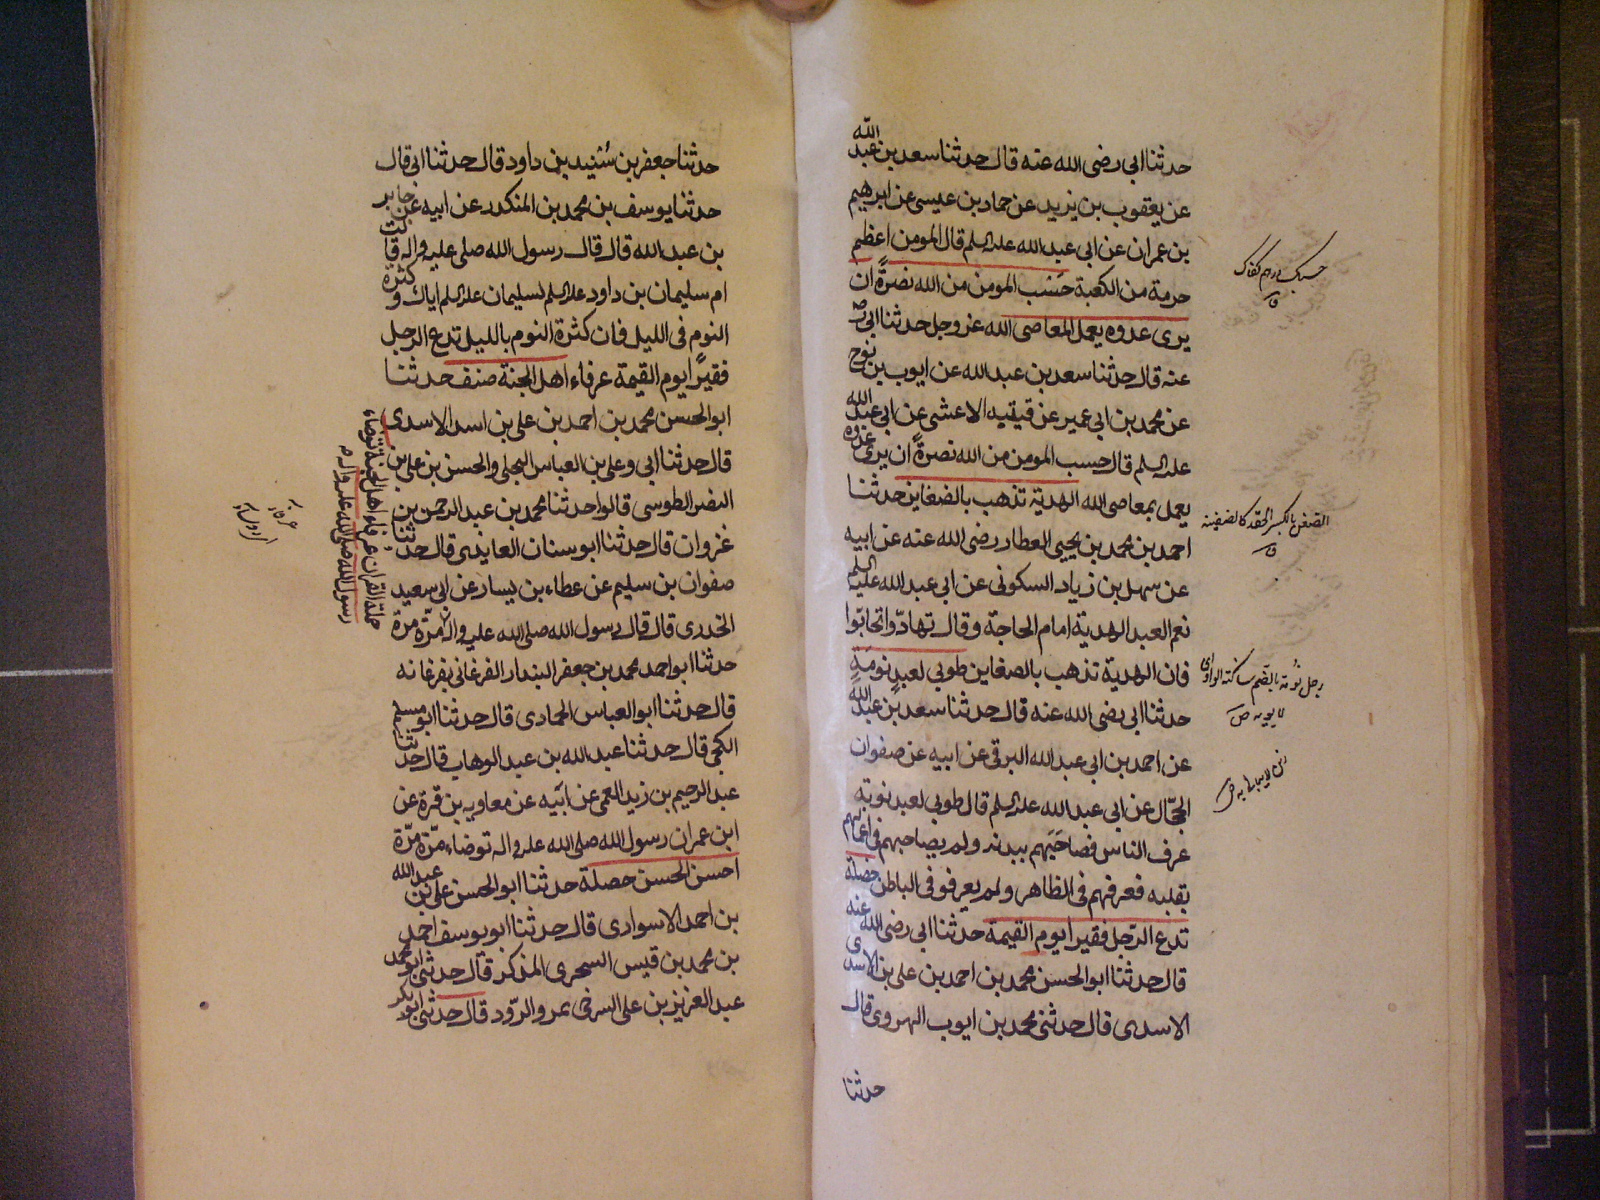 حدثنا ابي رضى الله عنه قال حدثنا سعد بن عبد الله
عن يعقوب بن يزيد عن حماد بن عيسى عن ابرهيم
بن عمران عن ابى عبد الله علہ السلم قال المومن اعظم
حرمة من الكعبة حسب المومن من الله نصرةً ان
يرى عدوه يعمل المعاصى الله عز وجل حدثنا ابى رض
عنه قال حدثنا سعد بن عبد الله عن ايوب بن نوح
عن محمد بن ابى عمير عن قيتيه الاعشى عن ابى عبد الله
علہ السلم قال حسب المومن من الله نصرةً ان يرى عدوه
يعمل بمعاصى الله الهدية تذهب بالضغاين حدثنا
احمد بن محمد بن يحيى العطار رضى الله عنه عن ابيه
عن سهل بن زياد السكونى عن ابى عبد الله عليه السلم
نعم العبد الهدية امام الحاجة وقال تهادّوا تحابّوا
فان الهدية تذهب بالضغاين طوبى لعبدٍ نومَةٍ
حدثنا ابى رضى الله عنه قال حدثنا سعد بن عبد الله
عن احمد بن ابى عبد الله البرقى عن ابيه عن صفوان
الجمّال عن ابى عبد الله علہ السلم قال طوبى لعبد نوبة
عرف الناس فصاحَبَهم ببدنه ولم يصاحبهم فى اعمالهم
بقلبه فعرفهم فى الظاهر ولم يعرفو فى الباطن خصلة
تدع الرّجل فقيرا يوم القيمة حدثنا ابى رضى الله عنه
قال حدثنا ابو الحسن محمد بن احمد بن على بن الاسدى
الاسدى قال حدثنى محمد بن ايوب الهروى قال
حدثنا
الضغن بالكسر الحقد كالضغينة
حدثنا جعفر بن سُنيد بن داود قال حدثنا ابى قال
حدثنا يوسف بن محمد بن المنكدر عن ابيه عن جابر
بن عبد الله قال قال رسول الله صلى عليه واله قالت
ام سليمان بن داود علہ السلم لسليمان علہ السلم اياك وكثرة
النوم فى الليل فان كثرة النوم بالليل تدع الرجل
فقيرًا يوم القيمة عرفاء اهل الجنة صنف حدثنا
ابو الحسن محمد بن احمد بن على بن اسد الاسدى
قال حدثنا ابى وعلى بن العباس البجلى والحسن بن على بن
النضر الطوسى قالوا حدثنا محمد بن عبد الرحمن بن
غزوان قال حدثنا ابو سنان العايذى قال حدثنا
صفوان بن سليم عن عطاء بن يسار عن ابى سعيد
الخدرى قال قال رسول الله صلى الله عليه واله مرّة مرة
حدثنا ابو احمد محمد بن جعفر البندار الفرغانى بفرغانه
قال حدثنا ابو العباس الحمادى قال حدثنا ابو مسلم
الكجى قال حدثنا عبد الله بن عبد الوهاب قال حدثنا
عبد الرحيم بن زيد العمى عن ابيه عن معاويه بن قرة عن
ابن عمر ان رسول الله صلى الله علہ واله توضاء مرّة مرّة
احسن الحسن خصلة حدثنا ابو الحسن على بن عبد الله
بن احمد الاسوارى قال حدثنا ابو يوسف احمد
بن محمد بن قيس السجزى المذكر قال حدثنى ابو محمد
عبد العزيز بن على السرخى بمرو الرّود قال حدثنى ابو بكر
حملة القران عرفاء اهل الجنة توضاء
رسول الله صلى الله علہ واله م
عرفاء